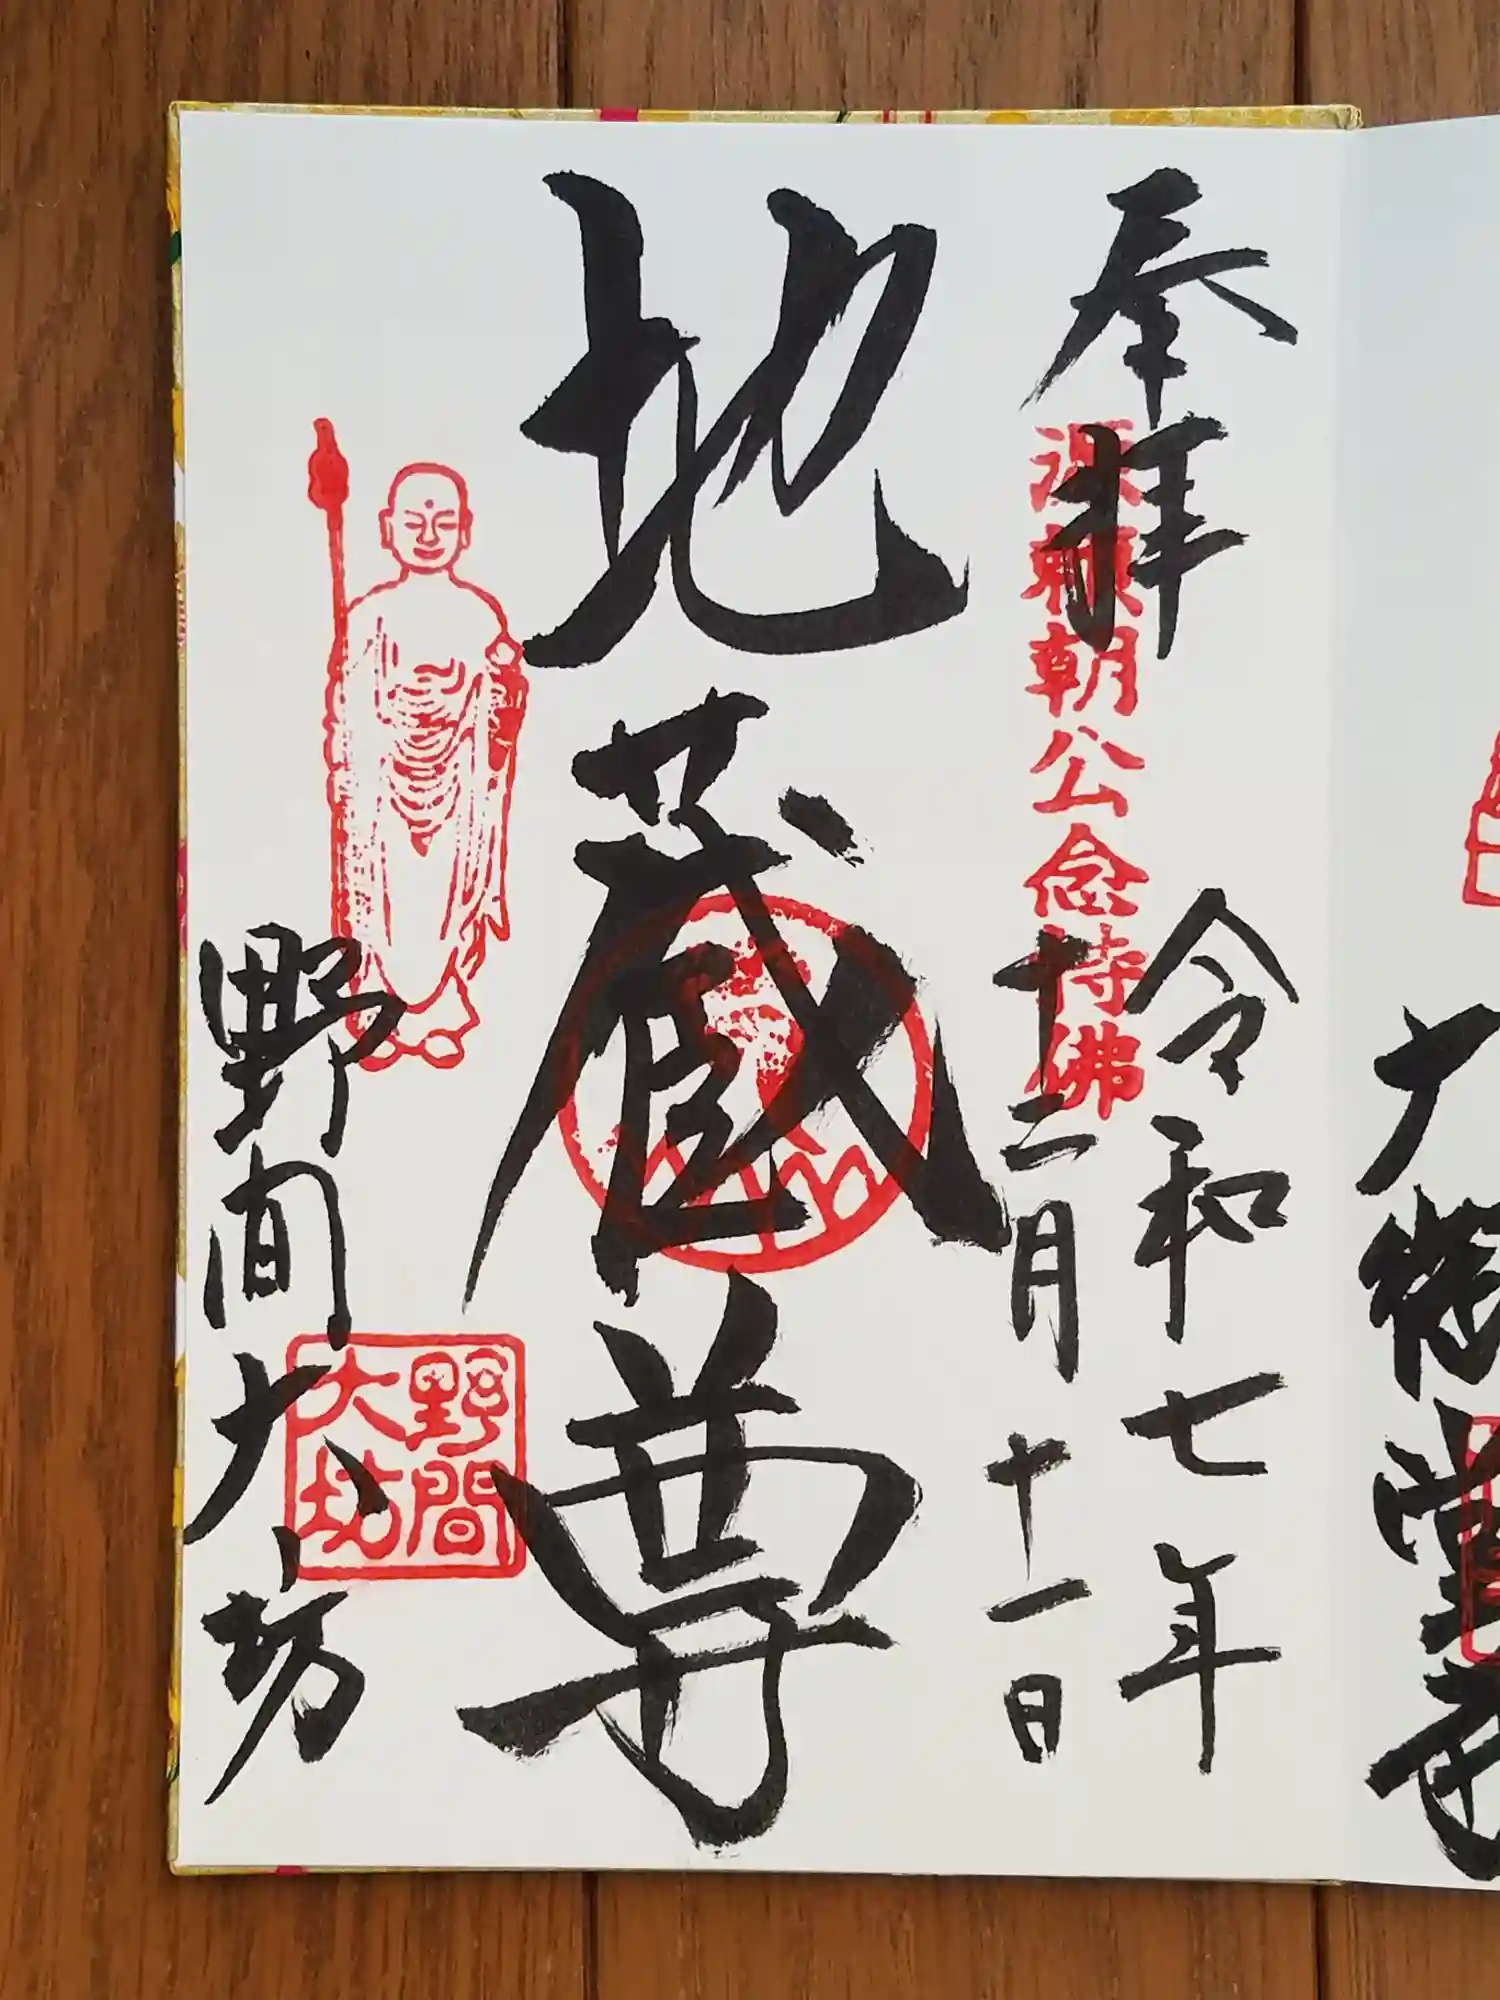 奉拝
源頼朝公念持佛
令和七年
十二月十一日
地蔵尊
野間大坊
野間
大坊